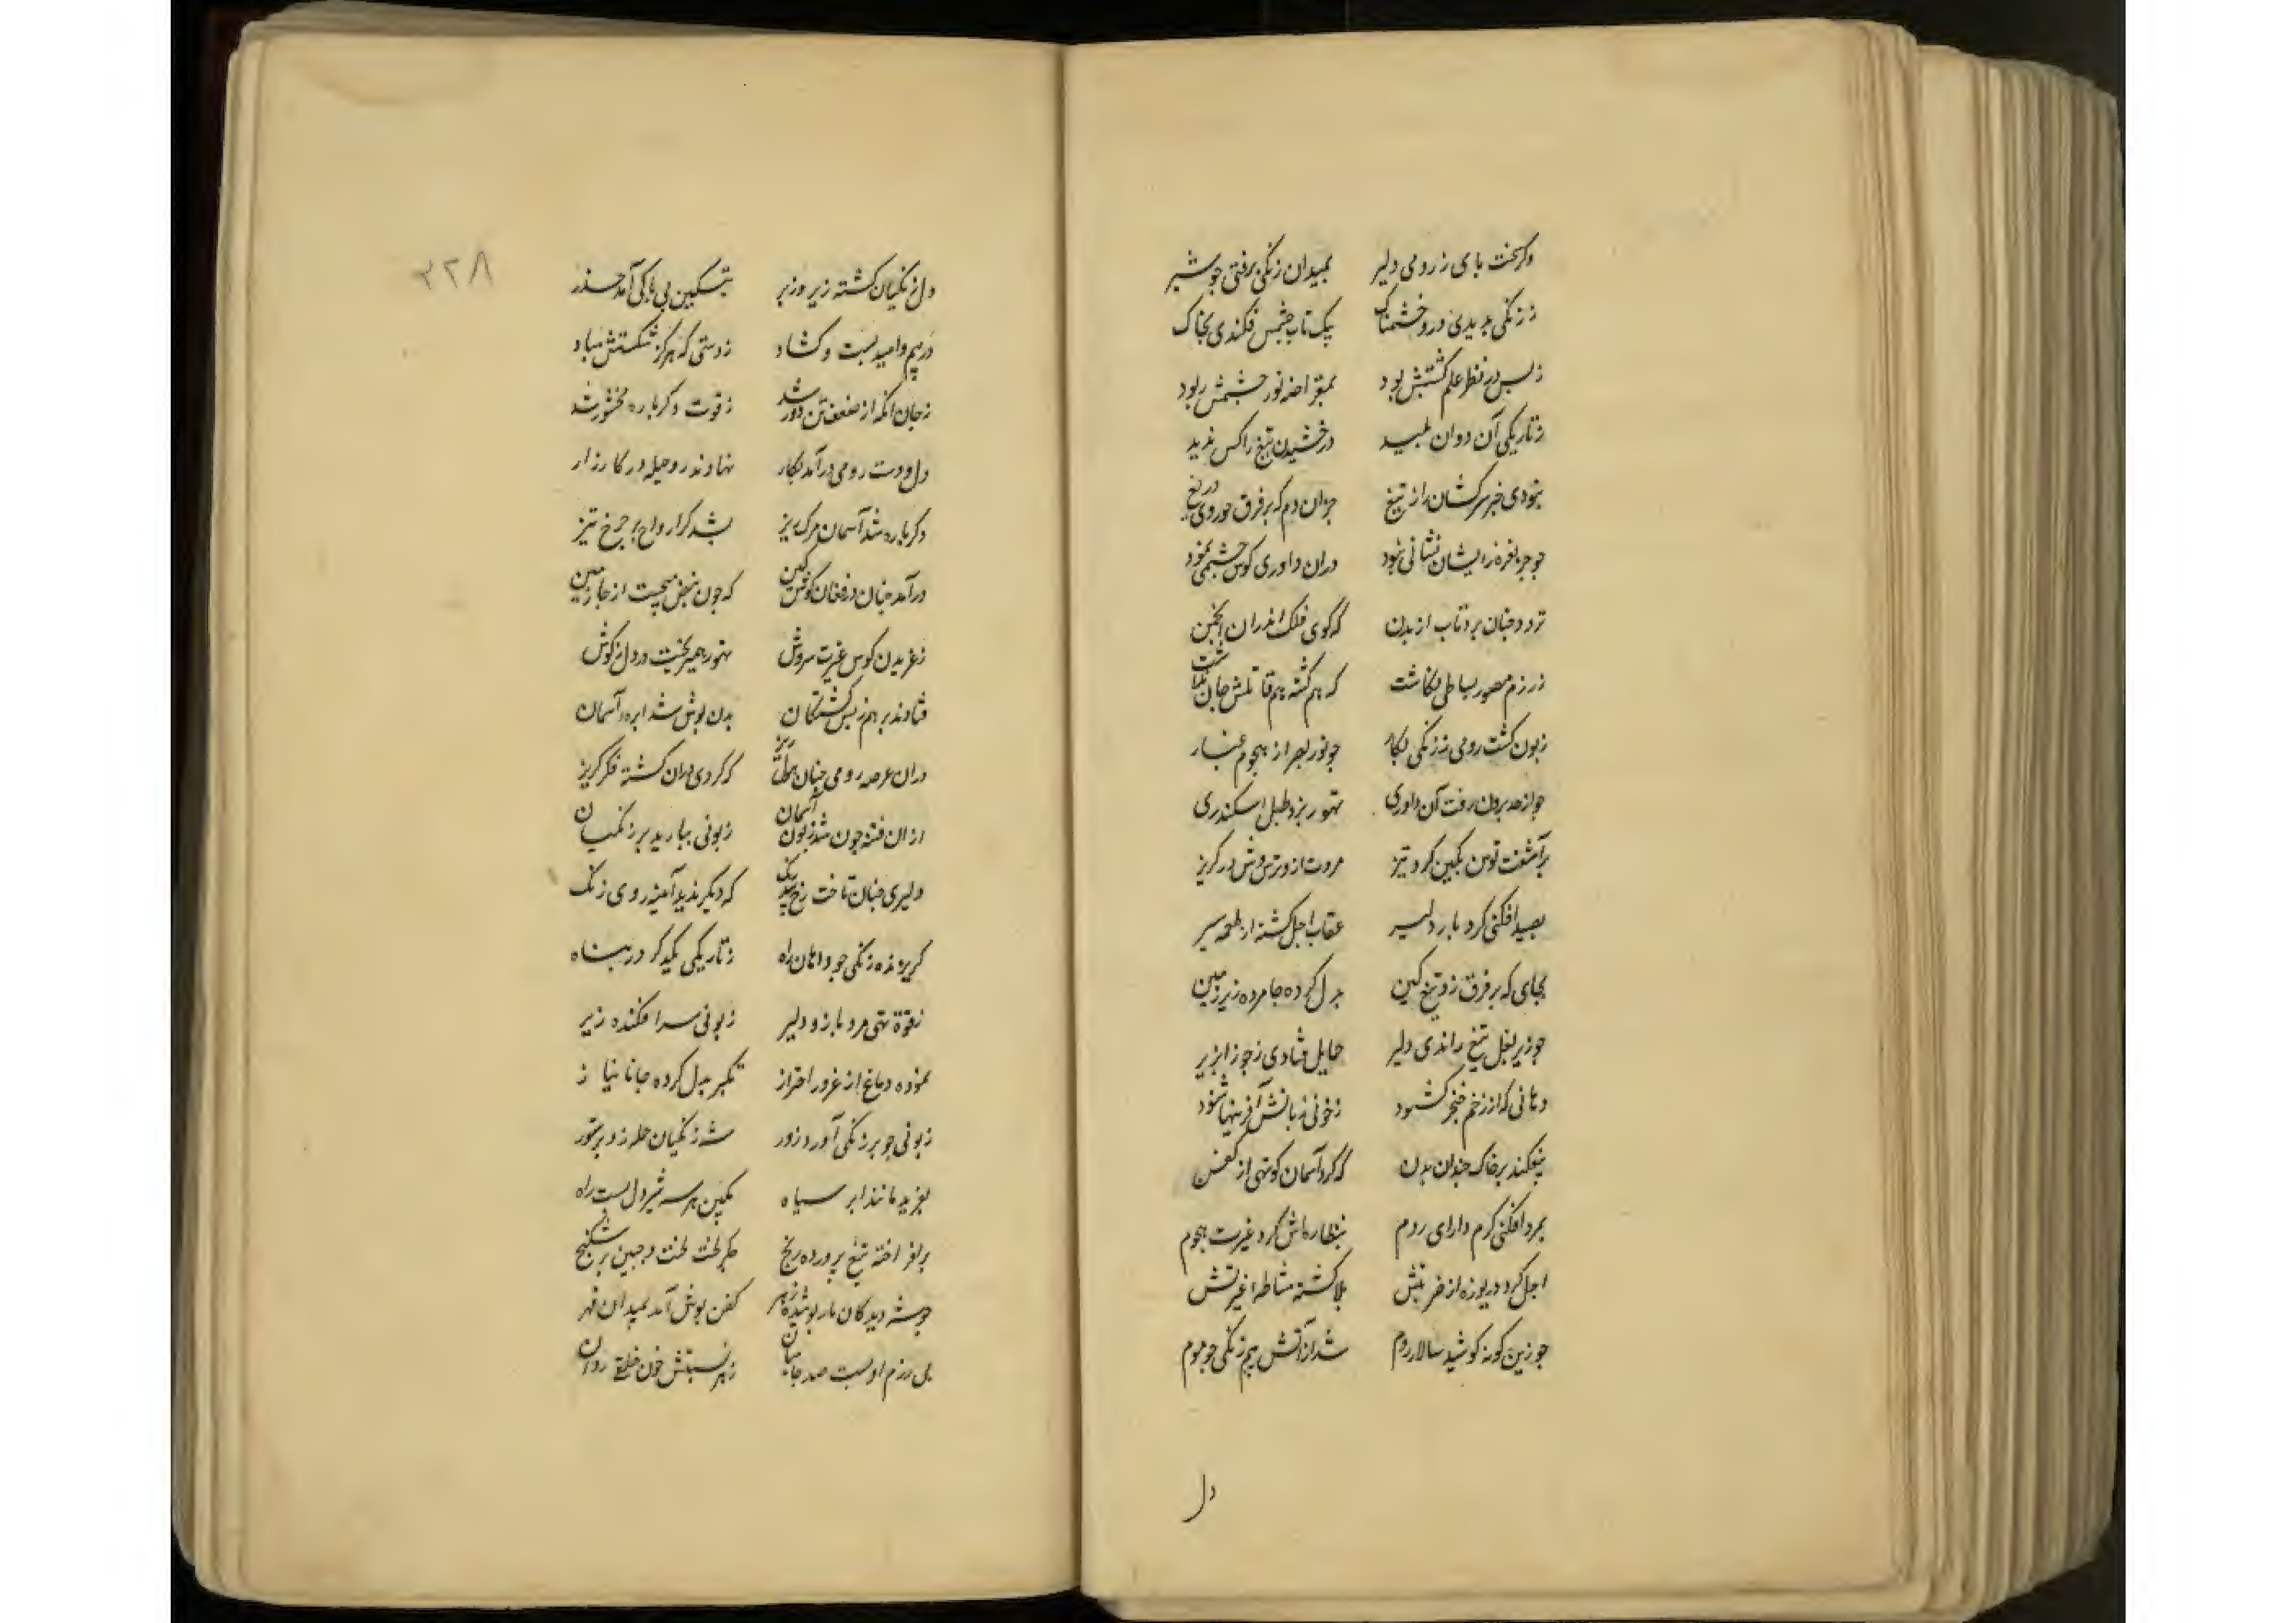 وکر بخت بای ز رومی دلیر بمیدان زنکی رفتی جو شیر
ز زنکی بدیدی درو خشمناک بیک تاب خشمش فکندی بخاک
ز بس در نظر علم کشتنش بود نور چشمش ربود
ز تاریکی آن دوان درخشیدن تیغ را کس ندید
نبودی خبر سرکشان را ز تیغ جز ان دم که بر فرق خوردی دریغ
جو جز نعره ز ایشان نشانی نبود دران داوری کوش چشمی نمود
تردد چنان برد تاب از بدن که کوی فلک اندران انجمن
ز رزم مصور بساطی نکاشت که هم کشته هم قاتلش جان نداشت
زبون کشت رومی ز زنکی بکار جو نور بصر از هجوم غبار
جو از حد برون رفت آن داوری تهور بزد طبل اسکندری
برآشفت توسن بکین کرد تیز مروت ازو ترس وش در کریز
بصید افکنی کرد بار دلیر عقاب اجل کشته از طعمه سیر
بجای که بر فرق زد تیغ کین بدل کرده جا مرده زیر زمین
جو زیر بغل تیغ راندی دلیر حمایل فتادی ز جوزا بزیر
دهانی که از زخم خنجر کشود ز خونی زبانش
بیفکند بر خاک چندان بدن که کرد آسمان کوتهی از کفن
بمرد افکنی کرم دارای روم بنظاره‌اش کرد غیرت هجوم
اجل کرد دریوزه از ضربتش بلا کشته مشاطه غیرتش
جو زین کونه کوشید سالار روم شد از آتش بیم زنکی جو موم
دل
۲۲۸
دل زنکیان کشته زیر و زبر بتسکین بی باکی آمد حذر
در بیم و امید بست و کشاد ز دستی که هرکز شکستش مباد
ز جان انکه از ضعف تن دور شد ز قوت دکرباره
دل و دست رومی درآمد بکار نهادند رو حیله در کارزار
دکرباره شد آسمان مرک ریز بشد کرد ارواح بر چرخ تیز
درآمد چنان در فغان کوس کین که چون نبض میجست از جا زمین
ز غریدن کوس غیرت سروش تهور همی‌ریخت در دل ز کوش
فتادند بر هم ز بس کشتکان بدن پوش شد ابره آسمان
دران عرصه رومی چنان که کردی دران کشته فکر کریز
ازان فتنه چون شد زبون آسمان زبونی ببارید بر زنکیان
دلیری چنان تاخت رخ که دیکر ندید آینه روی زنک
کریزنده زنکی جو دامان راه ز تاریکی یکدکر در پناه
ز قوة تهی مرد بازو دلیر ز بونی سرافکنده زیر
نموده دماغ از غرور احتراز تکبر بدل کرده جا با نیاز
زبونی جو بر زنکی آورد زور شه زنکیان حمله زد بر ستور
بغرید مانند ابر سیاه بکین بر سر شیردل بست راه
برافراخته تیغ پرورده رنج جکر لخت لخت و جبین پر شکنج
جو شه دید کان مار پوشیده زهر کفن پوش آمد بمیدان قهر
پی رزم او بست صد جا میان ز هر نسبتش خون خلقی روان